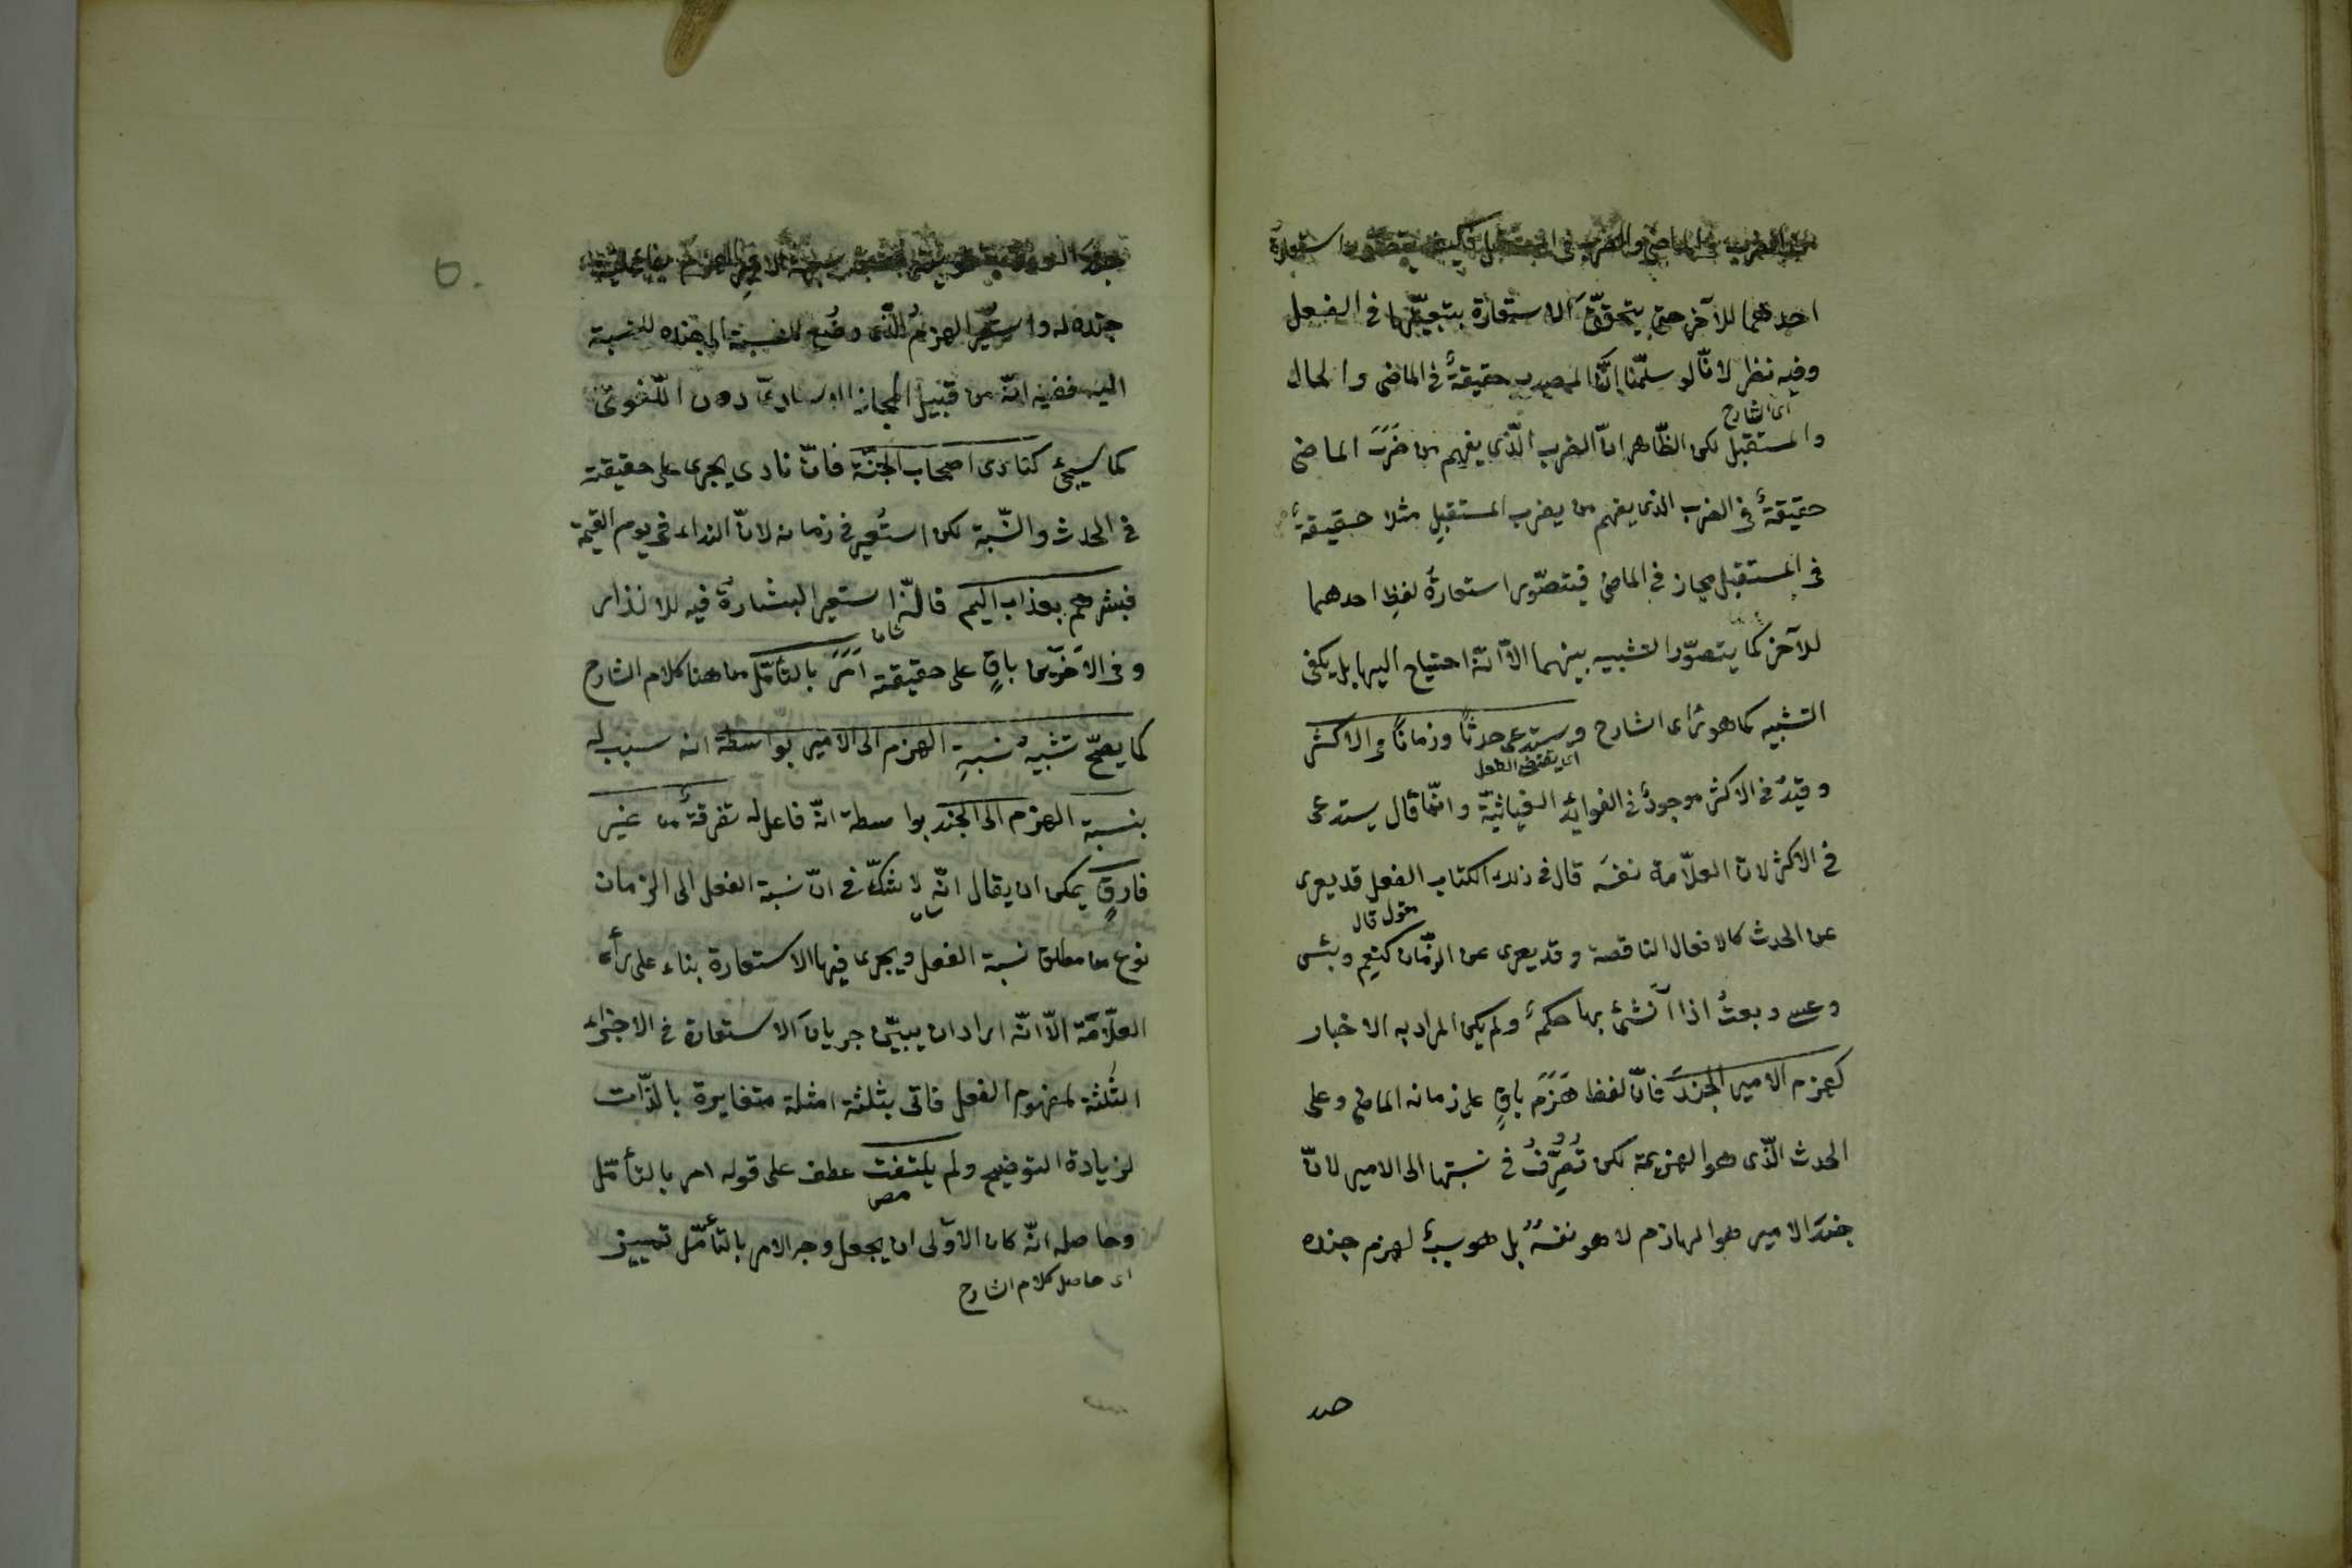 في الماضي والضرب في المستقبل فكيف يتصور استعارة
احدهما للآخر حتى يتحقّق الاستعارة بتبعيّتها في الفعل
وفيه نظر لانّا لو سلّمنا انّ المصدر حقيقةٌ في الماضى والحال
اى الشارح
والمستقبل لكن الظّاهر انّ الضرب الّذى يفهم من ضَرَبَ الماضى
حقيقةٌ في الضرب الذى يفهم من يضرب المستقبل مثلا حقيقةٌ
في المستقبل مجاز في الماضى فيتصوّر استعارةُ لفظِ احدهما
للآخر كما يتصوّر التشبيه بينهما الاّ انّه احتياج اليها بل يكفى
التشبيه كما هو رأى الشارح ويستدعى حدثًا وزمانًا في الاكثر
اى يقتضى الفعل
وقيدُ في الاكثر موجودٌ في الفوائد الغياثيّة وانّما قال يستدعى
في الاكثر لان العلّامة نفسَه قال في ذلك الكتاب الفعل قد يعرى
مقول قال
عن الحدث كالافعال الناقصة وقد يعرى عن الزّمان كنِعم وبئس
وعسى وبعتُ اذا اُنشئ بها حكمٌ ولم يكن المراد به الاخبار
كهزم الامير الجندَ فانّ لفظ هَزَمَ باقٍ على زمانه الماضى وعلى
الحدث الّذى هو الهزيمة لكن تُصُرِّفُ في نسبتها الى الامير لانّ
جندَ الامير هو الهازم لا هو نفسُهُ بل هو سببٌ لهزم جنده
جنده له واستُعير الهزمُ الّذى وُضع للنسبة الى جنده للنسبة
اليه ففيه انّه من قبيل المجاز الاسنادىّ دون اللّغوىّ
كما سيجئ كنادى اصحاب الجنّة فانّ نادى يجرى على حقيقته
في الحدث والنّسبة لكن استُعير في زمانه لانّ النداء في يوم القيمة
فبشّرهم بعذاب اليم فانّه استعير البشارةُ فيه للانذار
شان
وفى الآخَرَين باقٍ على حقيقته اَمَرَ بالتأمّل من هنا كلام الشارح
كما يصحّ تشبيهُ نسبةِ الهزم الى الامير بواسطة انه سبب له
بنسبة الهزم الى الجند بواسطة انّه فاعل له تفرقةٌ من غير
فارقٍ يمكن ان يقال انّه لا شكّ في انّ نسبة الفعل الى الزمان
شان
نوع من مطلق نسبة الفعل ويجرى فيها الاستعارة بناء على رأى
العلّامة الاّ انّه اراد ان يبيّن جريانَ الاستعارة في الاجزاء
الثلثة لمفهوم الفعل فاتى بثلثة امثلة متغايرة بالذّات
لزيادة التوضيح ولم يلتفت عطف على قوله امر بالتأمّل
مص
وحاصله انّه كان الاَولى ان يجعل وجه الامر بالتأمّل تمييز
اى حاصل كلام الشارح